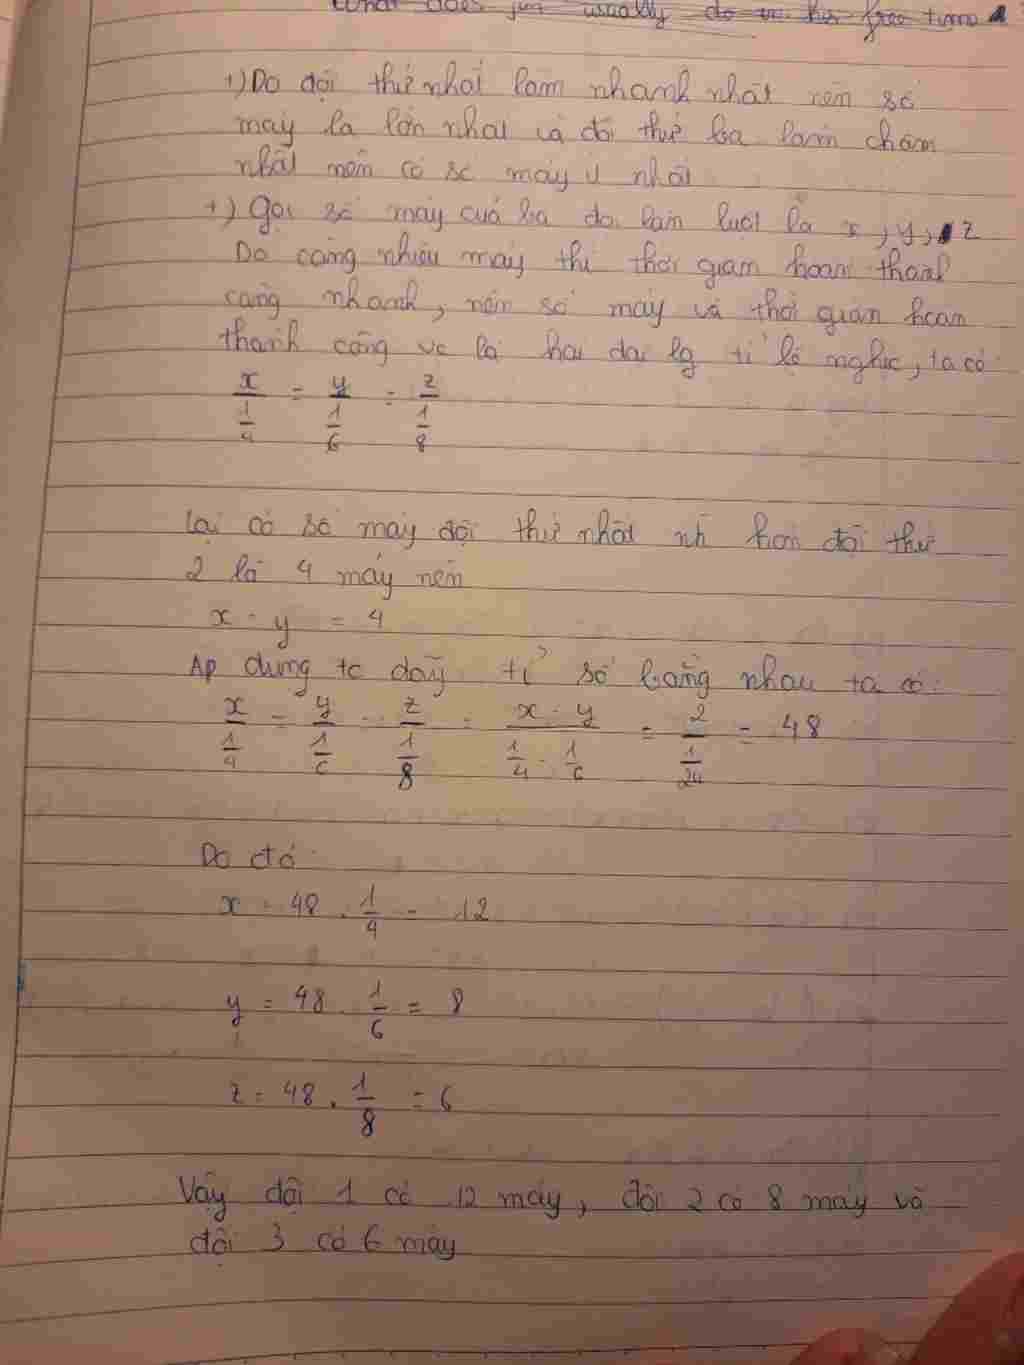 What does jim usually do in his free time
+) Do đội thứ nhất làm nhanh nhất nên số
máy là lớn nhất và đội thứ ba làm chậm
nhất nên có số máy ít nhất
+) Gọi số máy của ba đội lần lượt là x, y, z
Do càng nhiều máy thì thời gian hoàn thành
càng nhanh, nên số máy và thời gian hoàn
thành công vc là hai đại lg tỉ lệ nghịc, ta có:
x/(1/4) = y/(1/6) = z/(1/8)
Lại có số máy đội thứ nhất nh hơn đội thứ
2 là 4 máy nên
x - y = 4
Áp dụng tc dãy tỉ số bằng nhau ta có:
x/(1/4) = y/(1/6) = z/(1/8) = (x - y)/(1/4 - 1/6) = 2/(1/24) = 48
Do đó:
x = 48 . 1/4 = 12
y = 48 . 1/6 = 8
z = 48 . 1/8 = 6
Vậy đội 1 có 12 máy, đội 2 có 8 máy và
đội 3 có 6 máy